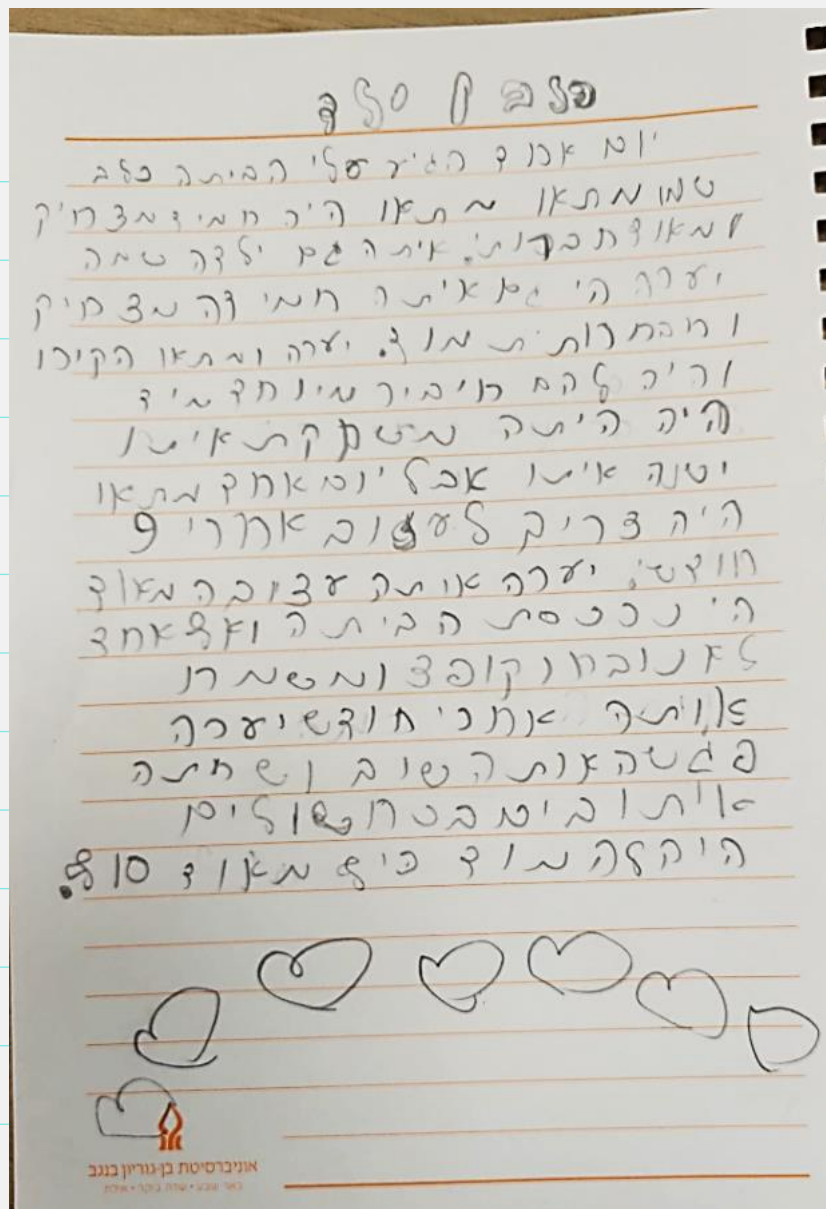 כלב ן סלד
יום ארוד הגיע עלי הביתה כלב
שמו מתאו מתאו היה חמיד מצחיק
ומאוד חברותי. איתה גם ילדה שמה
יערה הי גם איתה חמידה מצחיק
וחברותית מוד. יערה ומתאו הקירו
והיה להם חיביר מיוחד מיד
היה היתה משחקת איתו
ישנה איתו אבל יום אחד מתאו
היה צריך לעזוב אחרי 9
חודש. יערה איתה עצובה מאוד
הי נכנסת הביתה ואף אחד
לא נובח וקופצ ומשמח
אותה אחרי חודש יערה
פגשה אותה שוב ושחתה
איתו ביום
היה לה מוד כיף מאוד סוף.
אוניברסיטת בן-גוריון בנגב
באר שבע • שדה בוקר • אילת